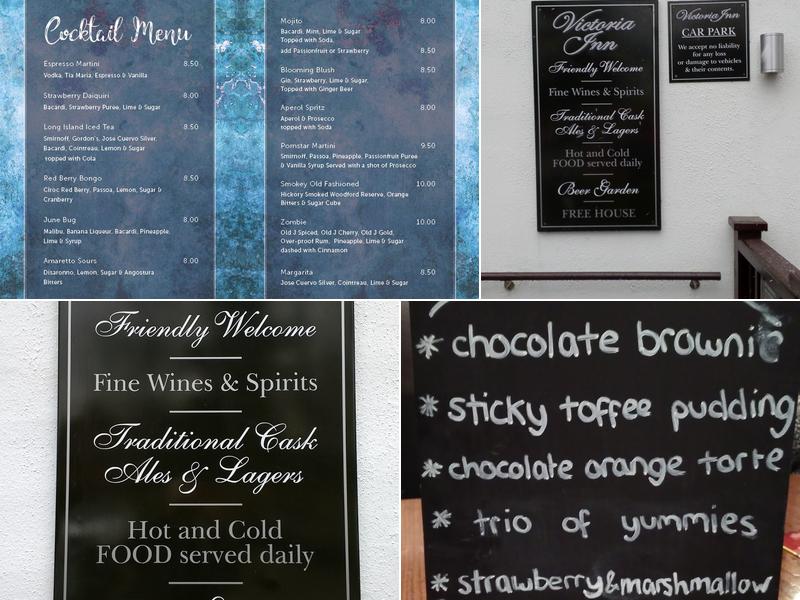 Cocktail Menu
Espresso Martini 8.50
Vodka, Tia Maria, Espresso & Vanilla
Strawberry Daiquiri 8.00
Bacardi, Strawberry Puree, Lime & Sugar
Long Island Iced Tea 8.50
Smirnoff, Gordon's, Jose Cuervo Silver,
Bacardi, Cointreau, Lemon & Sugar
topped with Cola
Red Berry Bongo 8.50
Ciroc Red Berry, Passoa, Lemon, Sugar &
Cranberry
June Bug 8.00
Malibu, Banana Liqueur, Bacardi, Pineapple,
Lime & Syrup
Amaretto Sours 8.00
Disaronno, Lemon, Sugar & Angostura
Bitters
Mojito 8.00
Bacardi, Mint, Lime & Sugar
Topped with Soda,
add Passionfruit or Strawberry 8.50
Blooming Blush 8.50
Gin, Strawberry, Lime & Sugar.
Topped with Ginger Beer
Aperol Spritz 8.00
Aperol & Prosecco
topped with Soda
Pornstar Martini 9.50
Smirnoff, Passoa, Pineapple, Passionfruit Puree
& Vanilla Syrup Served with a shot of Prosecco
Smokey Old Fashioned 10.00
Hickory Smoked Woodford Reserve, Orange
Bitters & Sugar Cube
Zombie 10.00
Old J Spiced, Old J Cherry, Old J Gold,
Over-proof Rum, Pineapple, Lime & Sugar
dashed with Cinnamon
Margarita 8.50
Jose Cuervo Silver, Cointreau, Lime & Sugar
Victoria
Inn
Friendly Welcome
Fine Wines & Spirits
Traditional Cask
Ales & Lagers
Hot and Cold
FOOD served daily
Beer Garden
FREE HOUSE
Victoria Inn
CAR PARK
We accept no liability
for any loss
or damage to vehicles
& their contents.
Friendly Welcome
Fine Wines & Spirits
Traditional Cask
Ales & Lagers
Hot and Cold
FOOD served daily
* chocolate brownie
* sticky toffee pudding
* chocolate orange torte
* trio of yummies
* strawberry & marshmallow